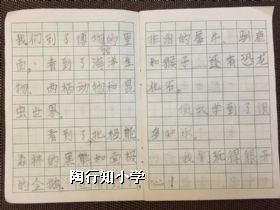 我们到了博物馆里
面,看到了海洋生
物、两栖动物和昆
虫世界。
看到了北极熊
森林的黑熊和南极
的企鹅。
非洲的犀牛、
和猴子,还有恐龙
化石。
我学到了很
多知识。
我们玩得很开
心!
陶行知小学